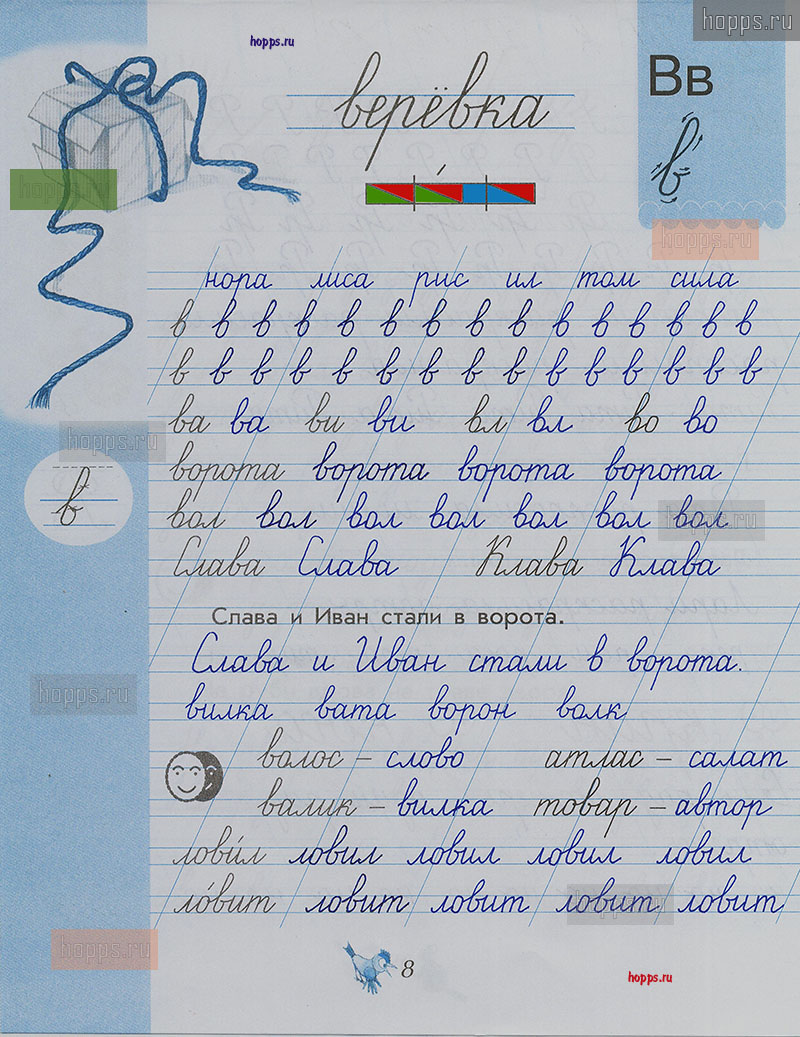 hopps.ru
hopps.ru
верёвка
Вв
в
hopps.ru
hopps.ru
нора лиса рис ил том сила
в в в в в в в в в в в в в в
в в в в в в в в в в в в в в
ва ва ви ви вл вл во во
hopps.ru
ворота ворота ворота ворота
в
вол вол вол вол вол вол вол
hopps.ru
Слава Слава Клава Клава
Слава и Иван стали в ворота.
Слава и Иван стали в ворота.
hopps.ru
вилка вата ворон волк
волос – слово атлас – салат
валик – вилка товар – автор
лови́л ловил ловил ловил ловил
ло́вит ловит ловит ловит ловит
hopps.ru
hopps.ru
8
hopps.ru